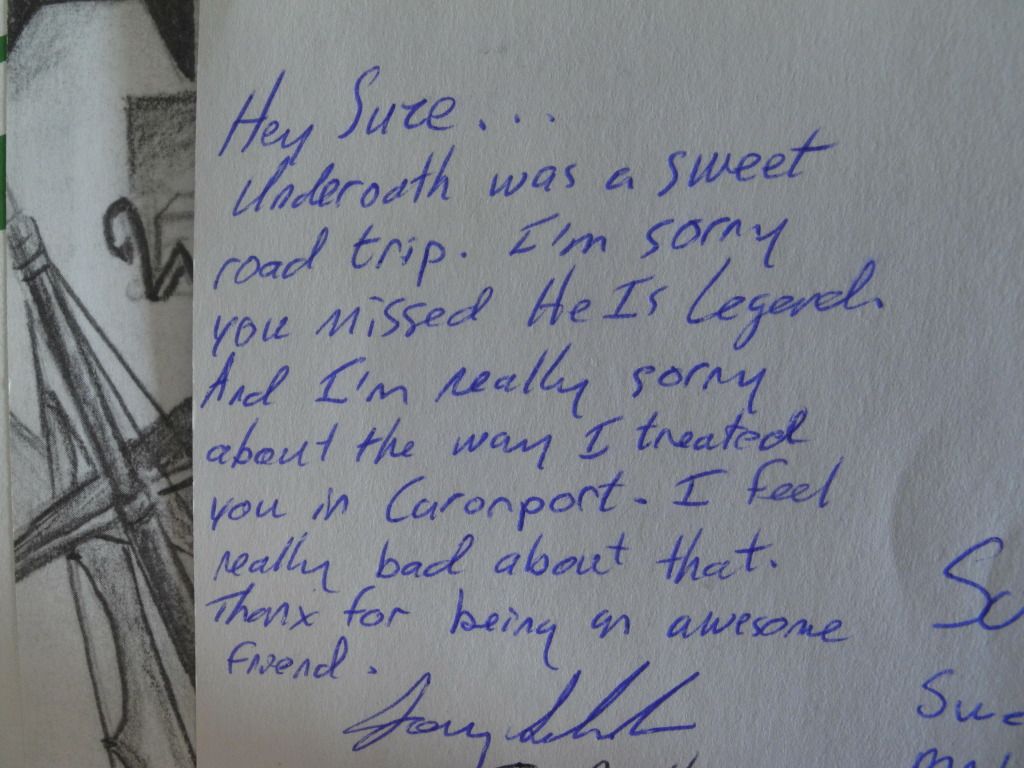 Hey Suze...
Underoath was a sweet
road trip. I'm sorry
you missed He Is Legend.
And I'm really sorry
about the way I treated
you in Caronport. I feel
really bad about that.
Thanx for being an awesome
friend.